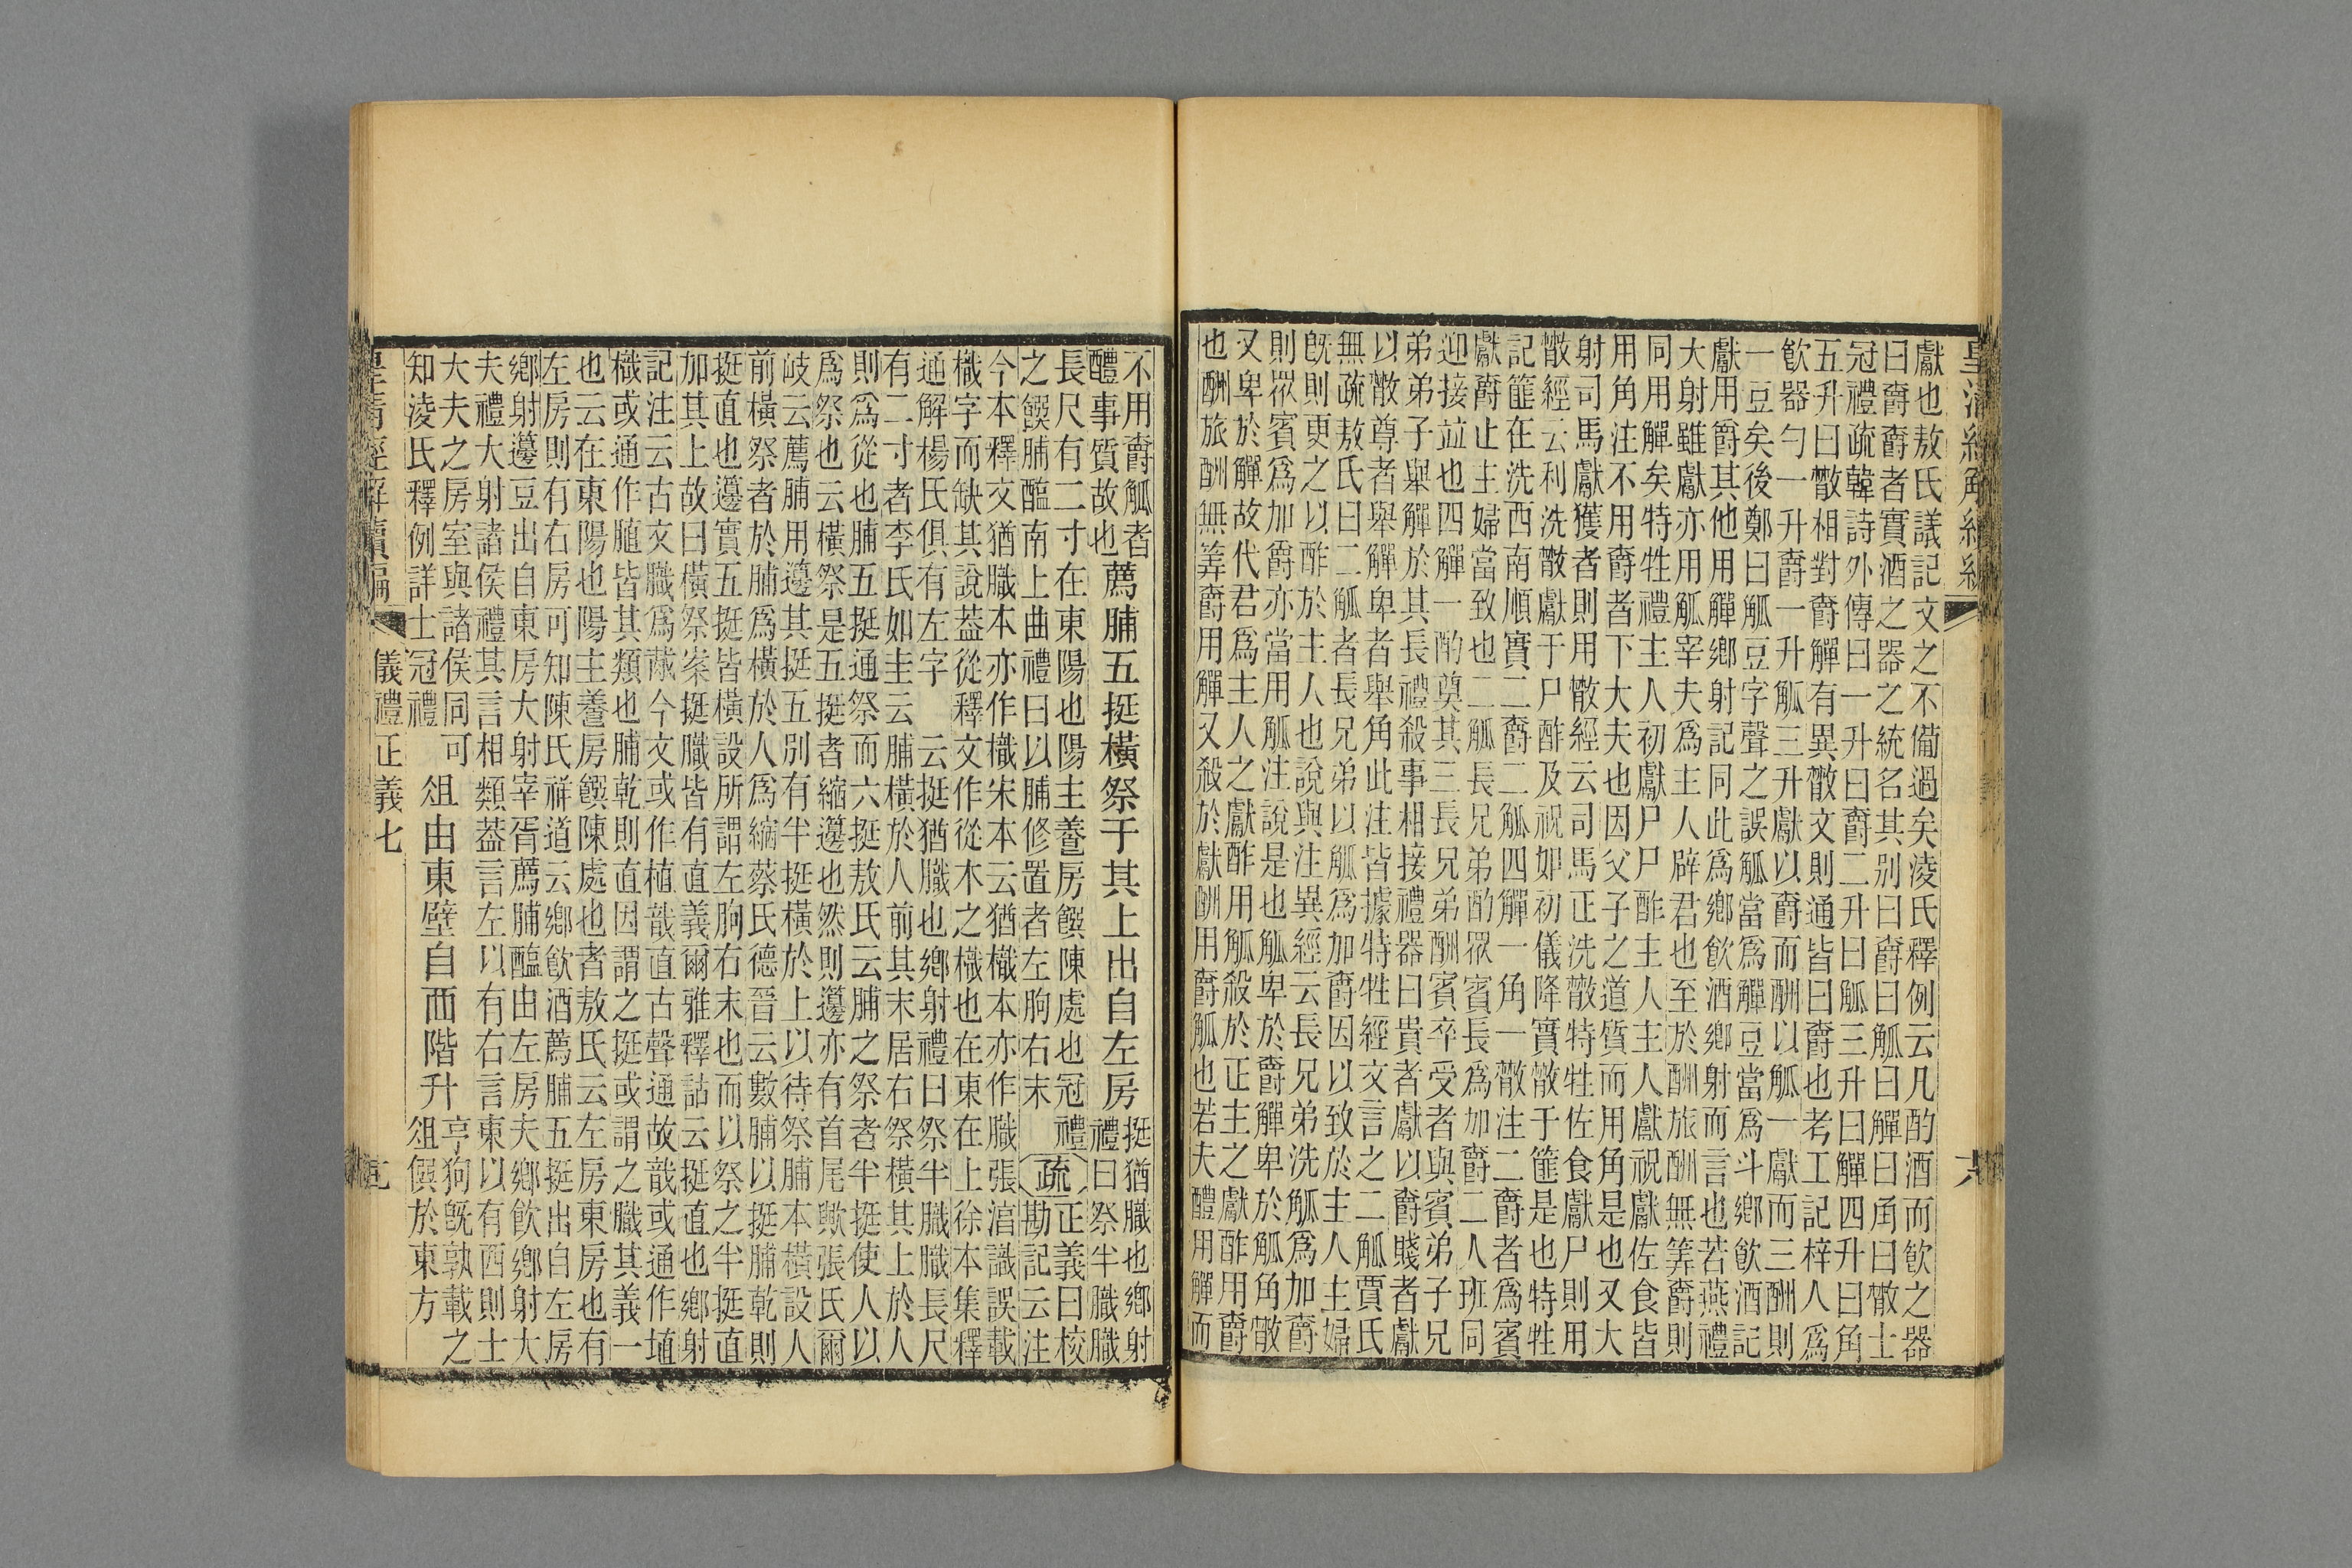 皇清經解續編
獻也敖氏議記文之不備過矣淩氏釋例云凡酌酒而飲之器
曰爵爵者實酒之器之統名其別曰爵曰觚曰觶曰角曰散士
冠禮疏韓詩外傳曰一升曰爵二升曰觚三升曰觶四升曰角
五升曰散相對爵觶有異散文則通皆曰爵也考工記梓人爲
飲器勺一升爵一升觚三升獻以爵而酬以觚一獻而三酬則
一豆矣後鄭曰觚豆字聲之誤觚當爲觶豆當爲斗鄉飲酒記
獻用爵其他用觶鄉射記同此爲鄉飲酒鄉射而言也若燕禮
大射雖獻亦用觚宰夫爲主人辟君也至於酬旅酬無筭爵則
同用觶矣特牲禮主人初獻尸尸酢主人主人獻祝獻佐食皆
用角注不用爵者下大夫也因父子之道質而用角是也又大
射司馬獻獲者則用散經云司馬正洗散特牲佐食獻尸則用
散經云利洗散獻于尸酢及祝如初儀降實散于篚是也特牲
記篚在洗西南順實二爵二觚四觶一角一散注二爵者爲賓
獻爵止主婦當致也二觚長兄弟酌眾賓長爲加爵二人班同
迎接並也四觶一酌奠其三長兄弟酬賓卒受者與賓弟子兄
弟弟子舉觶於其長禮殺事相接禮器曰貴者獻以爵賤者獻
以散尊者舉觶卑者舉角此注皆據特牲經文言之二觚賈氏
無疏敖氏曰二觚者長兄弟以觚爲加爵因以致於主人主婦
既則更之以酢於主人也說與注異經云長兄弟洗觚爲加爵
則眾賓爲加爵亦當用觚注說是也觚卑於爵觶卑於觚角散
又卑於觶故代君爲主人之獻酢用觚殺於正主之獻酢用爵
也酬旅酬無筭爵用觶又殺於獻酬用爵觚也若夫醴用觶而
不用爵觚者
醴事質故也
薦脯五挺橫祭于其上出自左房
挺猶膱也鄉射
禮曰祭半膱膱
長尺有二寸在東陽也陽主養房饌陳處也冠禮
之饌脯醢南上曲禮曰以脯修置者左朐右末
疏
正義曰校
勘記云注
今本釋文猶膱本亦作樴宋本云猶樴本亦作膱張湻識誤載
樴字而缺其說葢從釋文作從木之樴也在東在上徐本集釋
通解楊氏俱有左字 云挺猶膱也鄉射禮曰祭半膱膱長尺
有二寸者李氏如圭云脯橫於人前其末居右祭橫其上於人
則爲從也脯五挺通祭而六挺敖氏云脯之祭者半挺使人以
爲祭也云橫祭是五挺者縮籩也然則籩亦有首尾歟張氏爾
岐云薦脯用籩其挺五別有半挺橫於上以待祭脯本橫設人
前橫祭者於脯爲橫於人爲縮蔡氏德晉云數脯以挺脯乾則
挺直也籩實五挺皆橫設所謂左朐右末也而以祭之半挺直
加其上故曰橫祭案挺膱皆有直義爾雅釋詁云挺直也鄉射
記注云古文膱爲胾今文或作植胾直古聲通故胾或通作埴
樴或通作皆其類也脯乾則直因謂之挺或謂之膱其義一
也云在東陽也陽主養房饌陳處也者敖氏云左房東房也有
左房則有右房可知陳氏祥道云鄉飲酒薦脯五挺出自左房
鄉射籩豆出自東房大射宰胥薦脯醢由左房夫鄉飲鄉射大
夫禮大射諸侯禮其言相類葢言左以有右言東以有西則士
大夫之房室與諸侯同可
知淩氏釋例詳士冠禮
俎由東壁自西階升
亨狗既孰載之
俎饌於東方
皇清經解續編 儀禮正義七